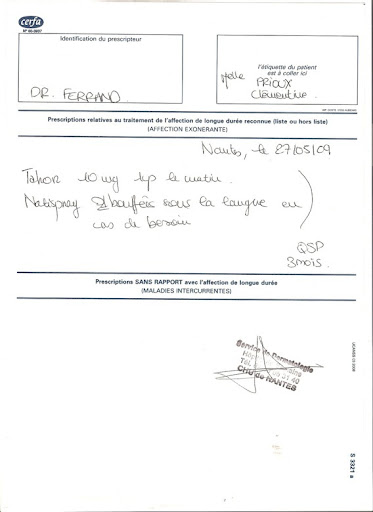 cerfa
N° 60-3937
Identification du prescripteur
DR. FERRAND
l'étiquette du patient
est à coller ici
Melle PRIOUX
Clémentine
Prescriptions relatives au traitement de l'affection de longue durée reconnue (liste ou hors liste)
(AFFECTION EXONERANTE)
Nantes, le 27/05/09
Tahor 10 mg 1cp le matin.
Natispray 2 bouffées sous la langue en
cas de besoin
QSP
3 mois.
Prescriptions SANS RAPPORT avec l'affection de longue durée
(MALADIES INTERCURRENTES)
Service de Dermatologie
CHU de NANTES
S 3321 a